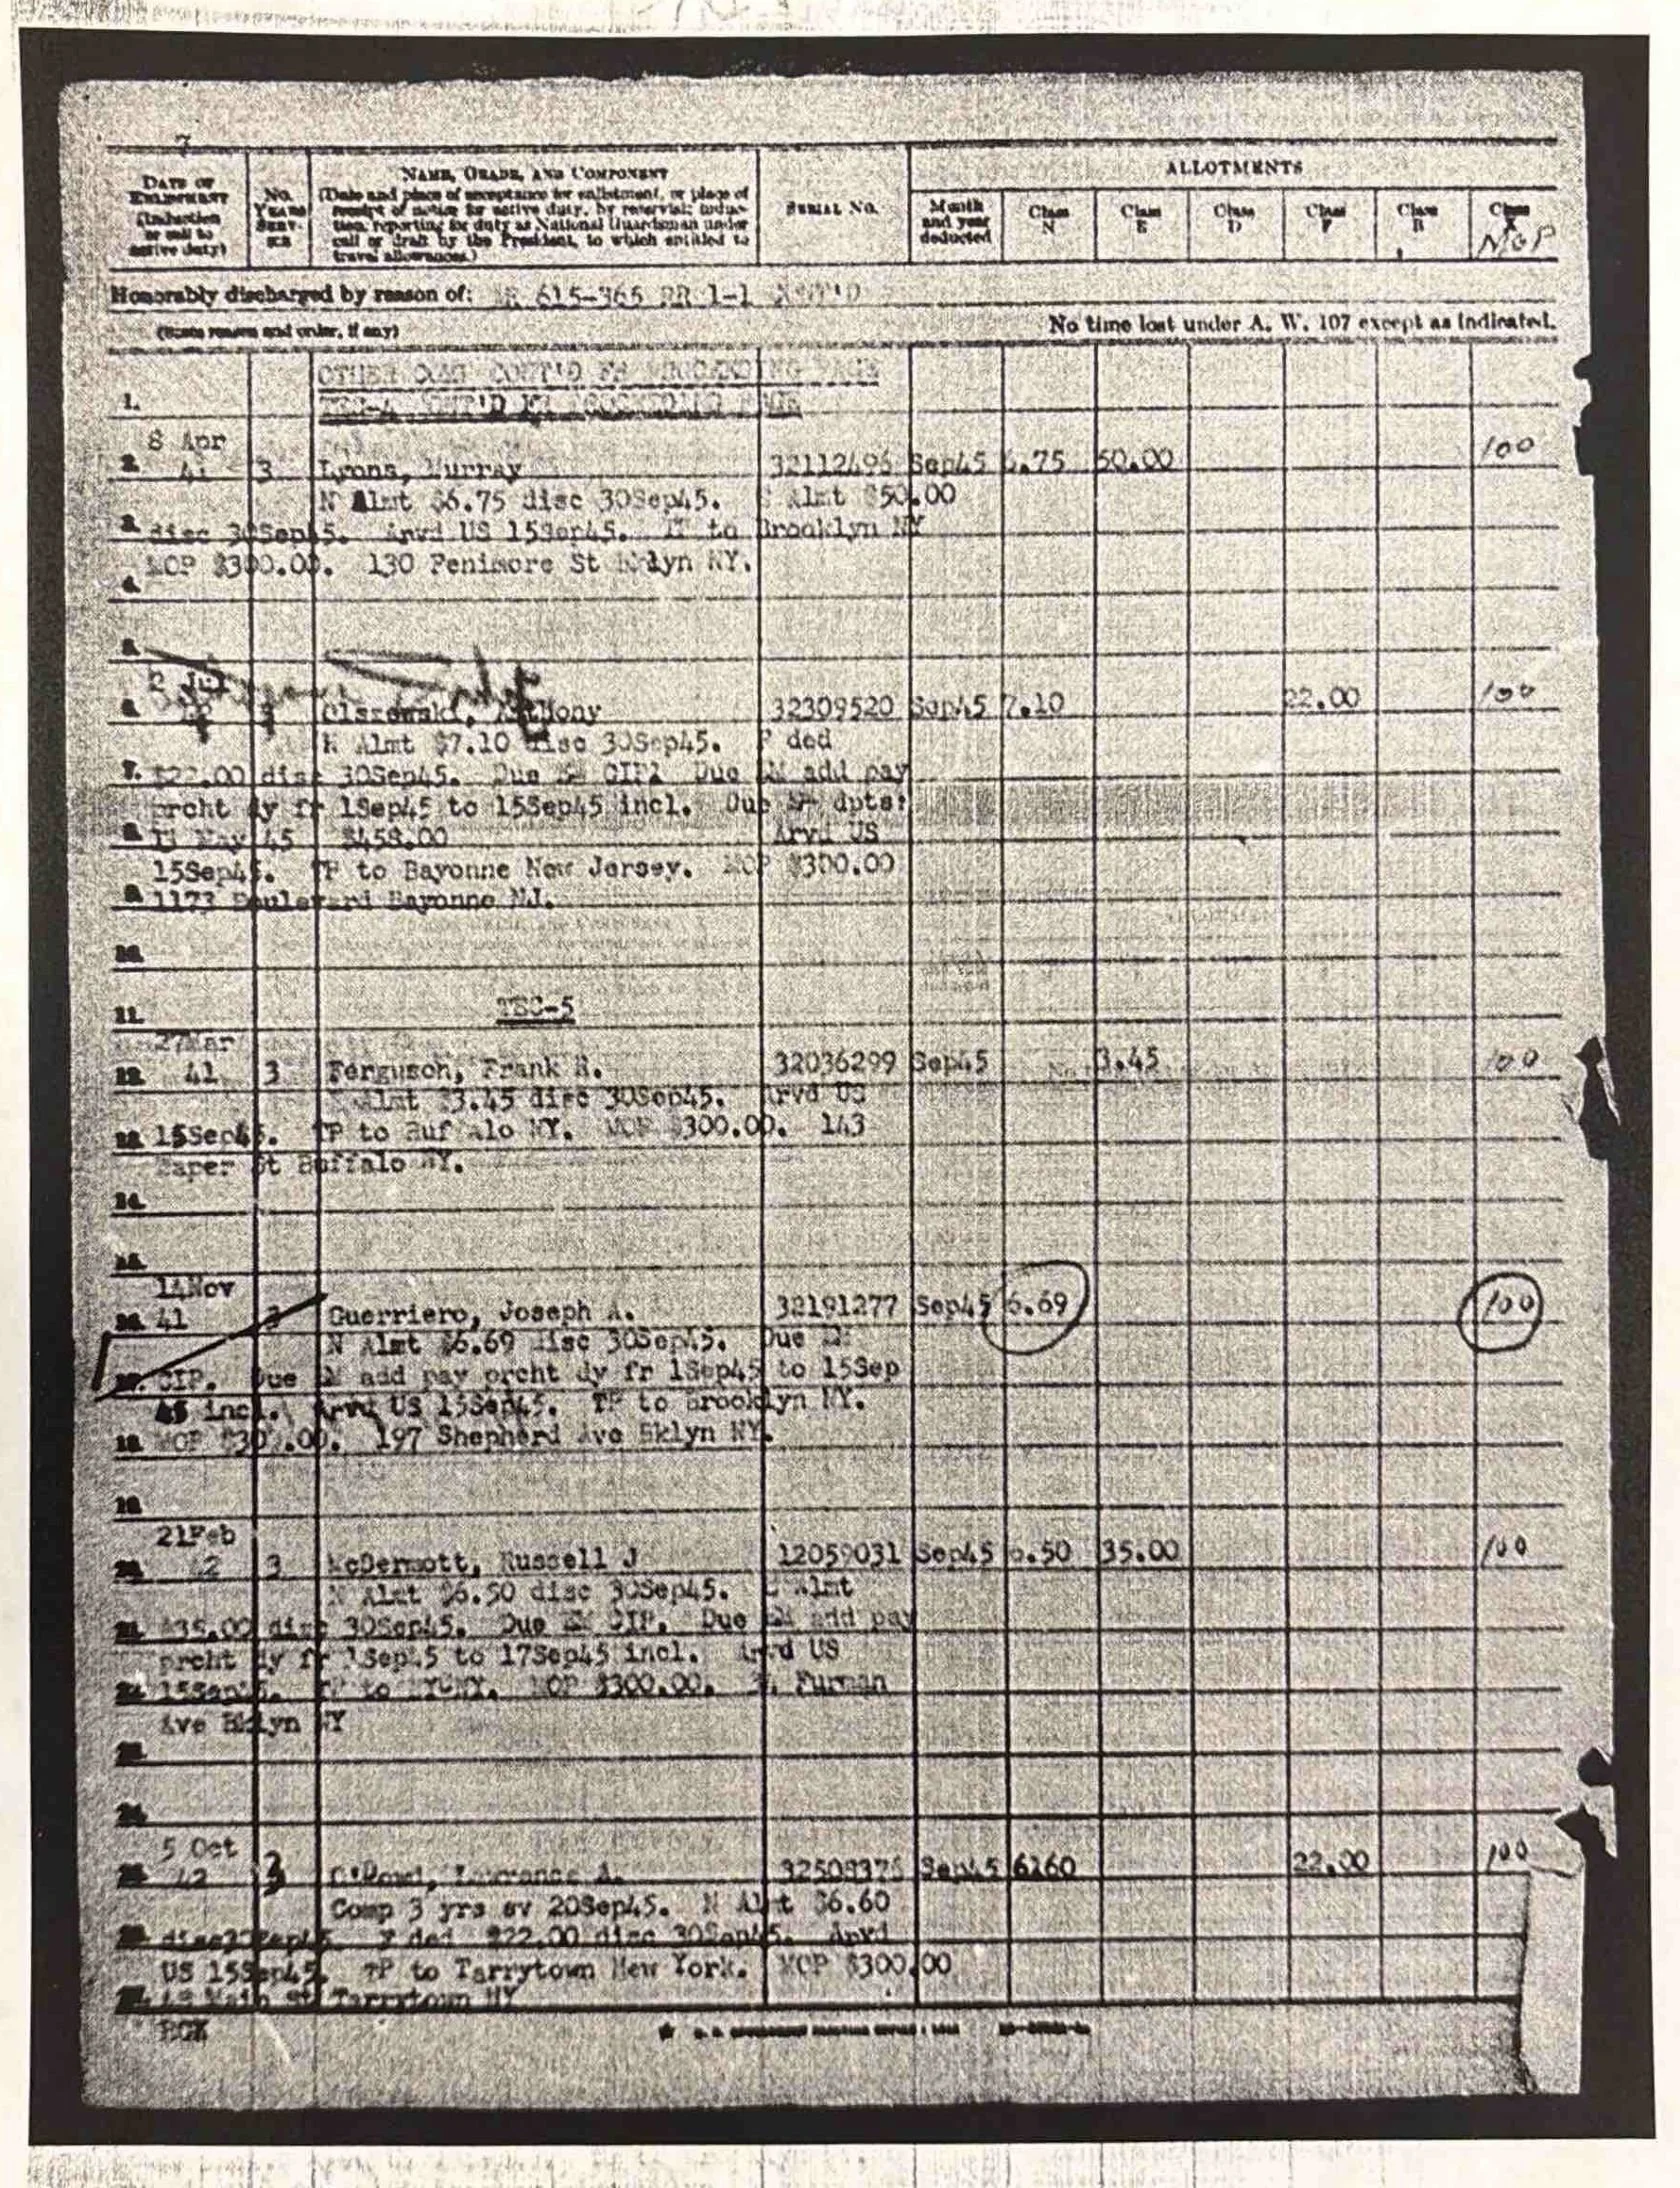 7
DATE OF ENLISTMENT (Induction or call to active duty)
NO. YEARS SERVICE
NAME, GRADE, AND COMPONENT
(Date and place of acceptance for enlistment, or place of
receipt of notice for active duty, by reservist; induc-
tion; reporting for duty as National Guardsman under
call or draft by the President, to which entitled to
travel allowances.)
SERIAL NO.
ALLOTMENTS
Month and year deducted
Class N
Class E
Class D
Class F
Class B
Class X
MOP
Honorably discharged by reason of: AR 615-365 RR 1-1
(State reason and order, if any)
No time lost under A. W. 107 except as indicated.
OTHER CONT'D FR PRECEDING PAGE
1.
8 Apr
2. 41 3 Lyons, Murray 32112496 Sep45 6.75 50.00 100
N Almt $6.75 disc 30Sep45. E Almt $50.00
3. disc 30Sep45. Arvd US 15Sep45. TP to Brooklyn NY
MOP $300.00. 130 Fenimore St Bklyn NY.
4.
5.
2
6. Olszewski, Anthony 32309520 Sep45 7.10 22.00 100
N Almt $7.10 disc 30Sep45. F ded
7. $22.00 disc 30Sep45. Due EM CIP. Due EM add pay
prcht dy fr 1Sep45 to 15Sep45 incl. Due EM dpts:
8. May 45 $458.00 Arvd US
15Sep45. TP to Bayonne New Jersey. MOP $300.00
9. 1173 Boulevard Bayonne NJ.
10.
11. TEC-5
27Mar
12. 41 3 Ferguson, Frank R. 32036299 Sep45 3.45 100
Almt $3.45 disc 30Sep45. Arvd US
13. 15Sep45. TP to Buffalo NY. MOP $300.00. 143
St Buffalo NY.
14.
15.
14Nov
16. 41 3 Guerriero, Joseph A. 32191277 Sep45 6.69 100
N Almt $6.69 disc 30Sep45. Due EM
17. CIP. Due EM add pay prcht dy fr 1Sep45 to 15Sep
45 incl. Arvd US 15Sep45. TP to Brooklyn NY.
18. MOP $300.00. 197 Shepherd Ave Bklyn NY.
19.
21Feb
20. 42 3 McDermott, Russell J 12059031 Sep45 6.50 35.00 100
N Almt $6.50 disc 30Sep45. E Almt
21. $35.00 disc 30Sep45. Due EM CIP. Due EM add pay
prcht dy fr 1Sep45 to 17Sep45 incl. Arvd US
22. 15Sep45. TP to NYCNY. MOP $300.00. Furman
Ave Bklyn NY
23.
24.
5 Oct
25. 42 3 O'Dowd, Lawrence A. 32508376 Sep45 6160 22.00 100
Comp 3 yrs sv 20Sep45. N Almt $6.60
26. disc30Sep45. F ded $22.00 disc 30Sep45. Arvd
US 15Sep45. TP to Tarrytown New York. MOP $300.00
27. Main St Tarrytown NY